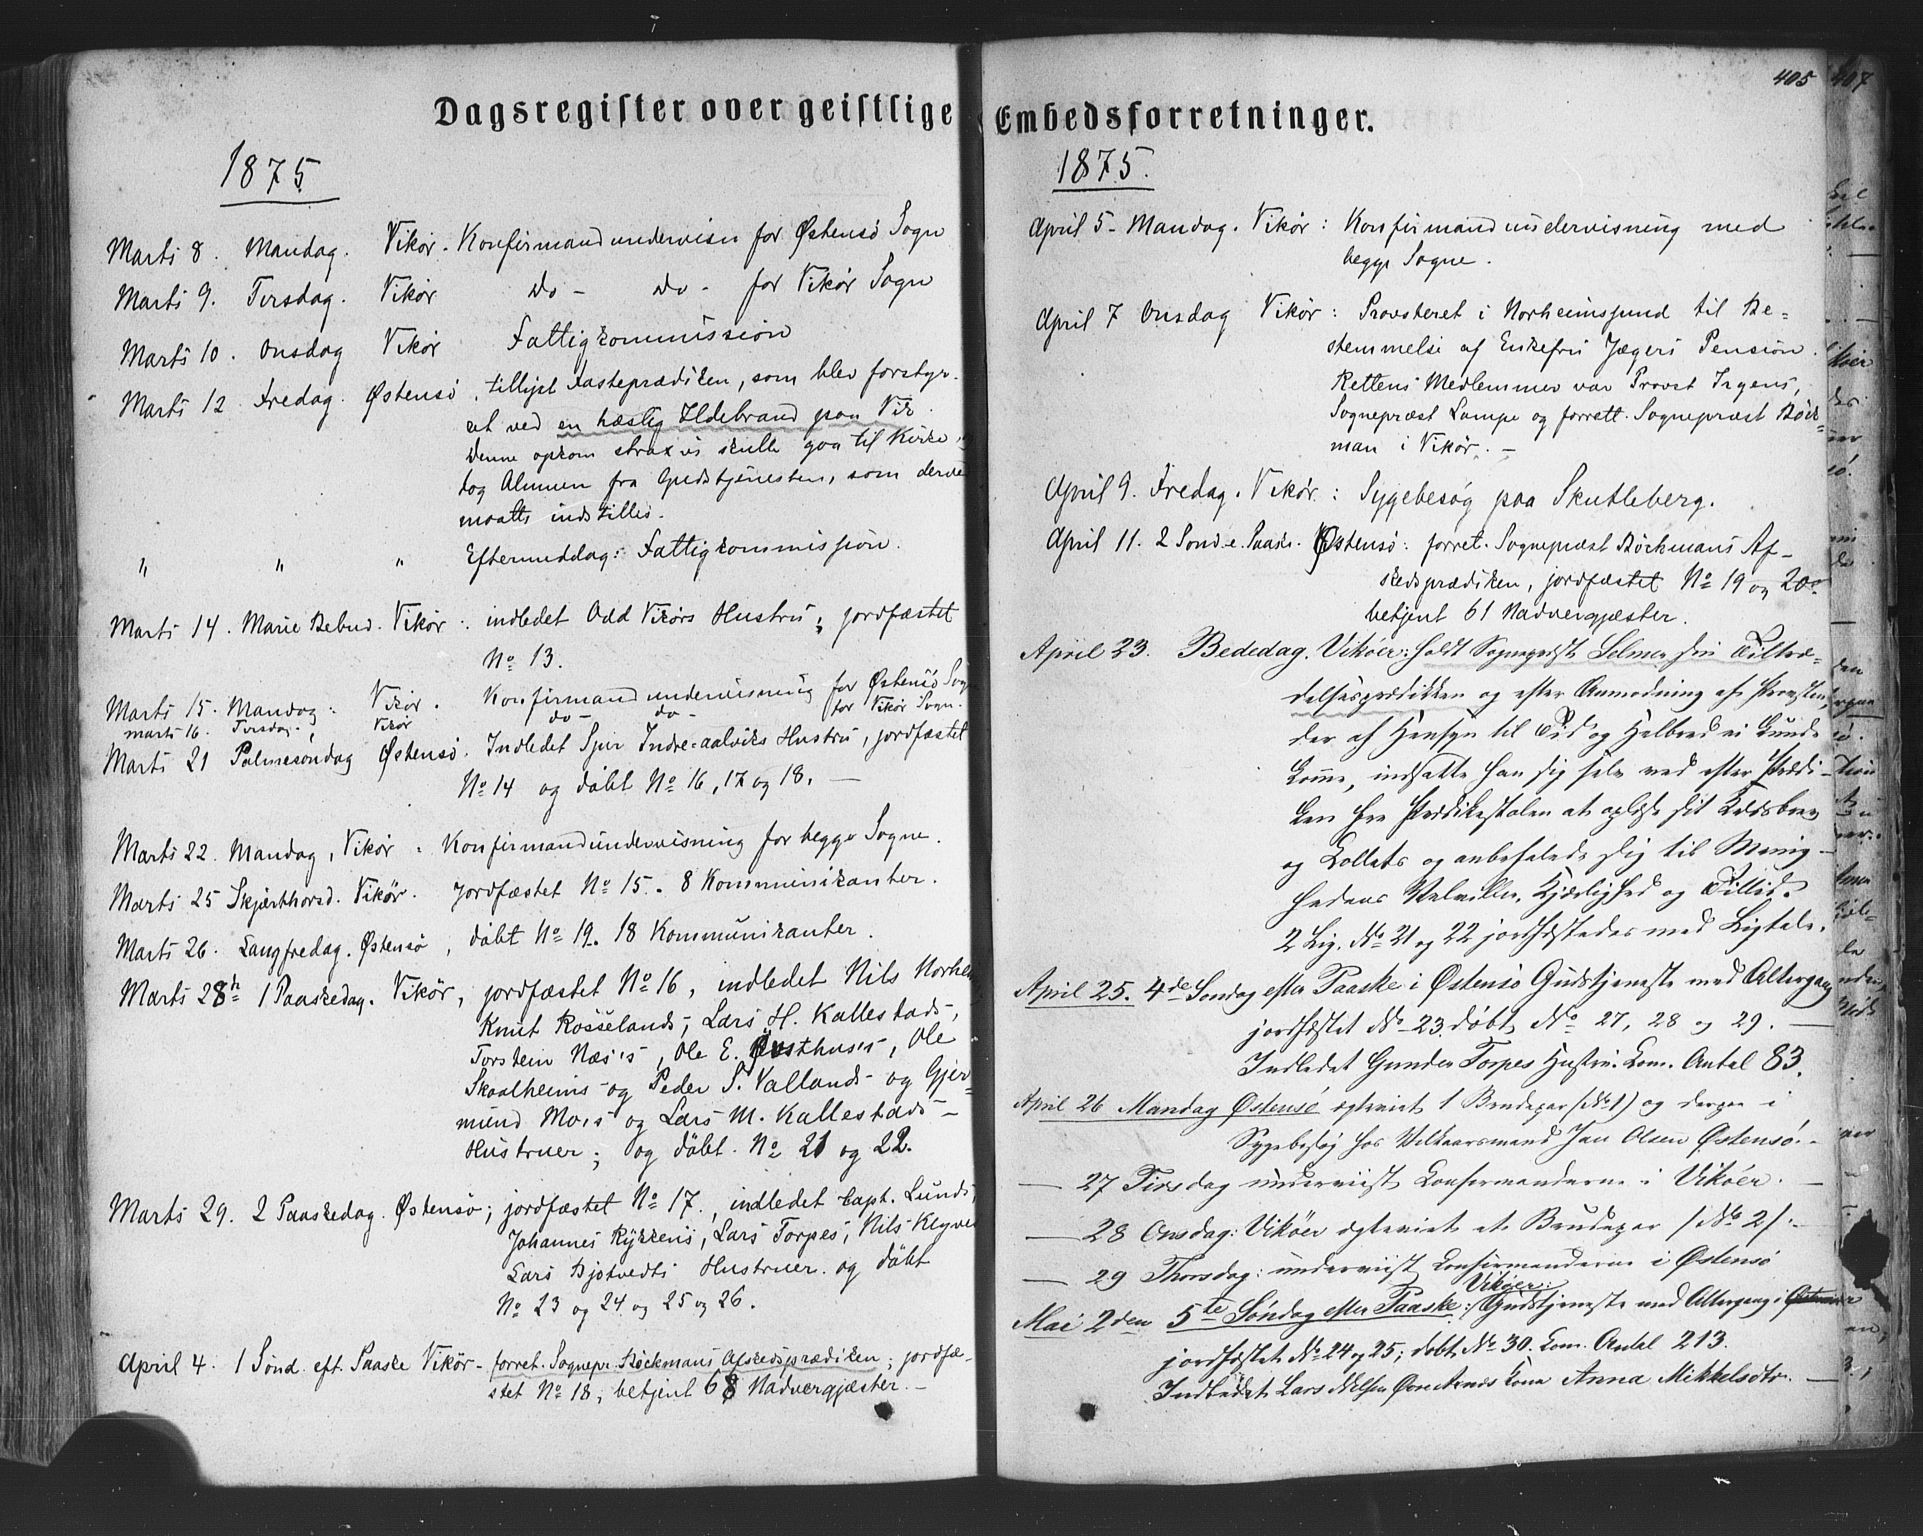 405 407
Dagsregister over geistlige Embedsforretninger.
1875
Marts 8. Mandag. Vikør. Konfirmandundervisn for Østensö Sogn
Marts 9. Tirsdag. Vikør do - do - for Vikør Sogn
Marts 10. Onsdag Vikør Fattigkommission
Marts 12. Fredag. Østensö, tilligst Fasteprædiken, som blev forstyr-
ret ved en hæslig Ildebrand paa Vik.
Denne opkom strax vi skulle gaa til Kirke,
tog Almuen fra Gudstjenesten, som derved
maatte indstilles.
" " " Eftermiddag: Fattigkommission.
Marts 14. Marie Bebud. Vikør: indledet Odd Vikørs Hustru; jordfæstet
No 13.
Marts 15. Mandag. Vikør. Konfirmandundervisning for Østensö Sogn
marts 16. Tirsdag. Vikør do - do - for Vikør Sogn.
Marts 21 Palmesöndag Østensö. Indledet Sjur Indre-aalviks Hustru, jordfæstet
No 14 og döbt No 16, 17 og 18. —
Marts 22. Mandag, Vikør. Konfirmandundervisning for begge Sogne.
Marts 25 Skjærthorsd. Vikör. Jordfæstet No 15. 8 Kommunikanter.
Marts 26. Langfredag. Østensö, döbt No 19. 18 Kommunikanter.
Marts 28de 1 Paaskedag. Vikør, jordfæstet No 16, indledet Nils Norhei
Knut Rosselands-, Lars H. Kallestads-,
Torstein Næs's, Ole E. Østhus's, Ole
Skaalheims- og Peder S. Vallands- og Gjer-
mund Mo's og Lars M. Kallestads-
Hustruer; og döbt No 21 og 22.
Marts 29. 2 Paaskedag. Østensö; jordfæstet No 17, indledet Capt. Lunds,
Johannes Rykkens, Lars Torpes, Nils Klyve
Lars Bjotvedts Hustruer. og döbt
No 23 og 24 og 25 og 26.
April 4. 1 Sönd. eft. Paaske Vikør - forret. Sognepr. Böckmans Afskedsprædiken; jordfæ-
stet No 18, betjent 68 Nadvergjæster. —
1875.
April 5 - Mandag. Vikør: Konfirmandundervisning med
begge Sogne.
April 7 Onsdag Vikør: Provsteret i Norheimsund til Be-
stemmelse af Enkefru Jægers Pension.
Rettens Medlemmer var Provst Irgens,
Sognepræst Lampe og forrett. Sognepræst Böck-
man i Vikør. —
April 9. Fredag. Vikör: Sygebesøg paa Skutleberg.
April 11. 2 Sönd. e. Paaske. Østensö: forret. Sognepræst Böckmans Af-
skedsprædiken, jordfæstet No 19 og 20.
betjent 61 Nadvergjæster.
April 23. Bededag. Vikøer: holdt Sognepræst Selmer sin Tiltræ-
delsesprædikken og efter Anmodning af Provsten,
der af Hensyn til Tid og Helbred ei kunde
komme, indsatte han sig selv ved efter Prædi-
ken fra Prædikestolen at oplæse sit Kaldsbrev
og Collats og anbefalede sig til Menig-
hedens Velvillie, Kjærlighed og Tillid.
2 Lig. No 21 og 22 jordfæstedes med Ligtale.
April 25. 4de Söndag efter Paaske i Østensö Gudstjeneste med Altergang
jordfæstet No 23. döbt No 27, 28 og 29. —
Indledet Gunder Torpes Hustru. Com. Antal 83.
April 26 Mandag Østensö egteviet 1 Brudepar (No 1) og derpaa i
Sygebesög hos Vilkaarsmand Jan Olsen Østensö. -
— 27 Tirsdag underviist Confirmanderne i Vikøer. —
— 28 Onsdag: Vikøer egteviet et Brudepar (No 2). -
— 29 Thorsdag: underviist Confirmanderne i Østensö
Vikøer:
Mai 2den 5te Söndag efter Paaske: Gudstjeneste med Altergang i Østensö
jordfæstet No 24 og 25; döbt No 30. Com. Antal 213.
Indledet Lars Kone Anna Mikkelsdtr. —